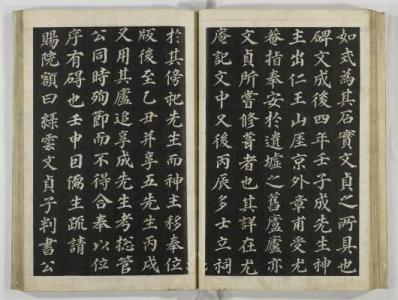 如式為其石實文貞之所具也
碑文成後四年壬子成先生神
主出仁王山厓京外章甫受尤
菴指奉安於遺墟之舊廬廬亦
文貞所嘗修葺者也其詳在尤
庵記文中又後丙辰多士立祠
於其傍祀先生而神主移奉位
版後至乙丑并享五先生丙戌
又用其廬追享成先生考摠管
公同時殉節而不得合奉以位
序有碍也壬申因儒生疏請
賜院額曰綠雲文貞子判書公